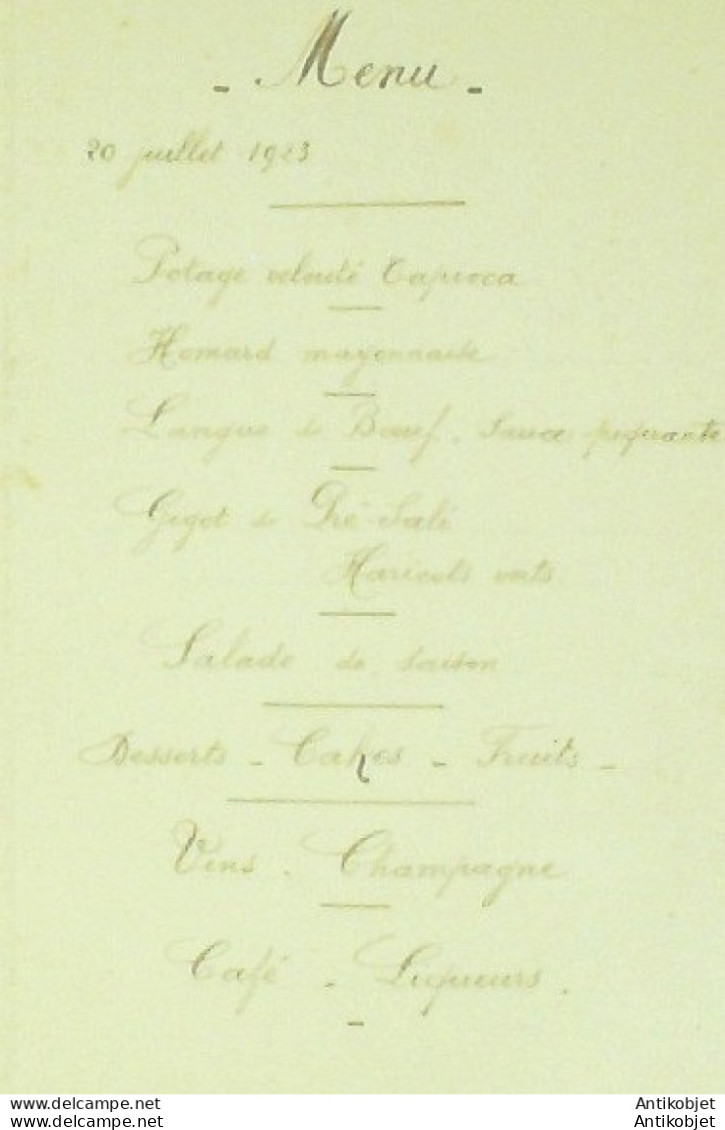 - Menu -
20 juillet 1923
Potage velouté Tapioca
Homard mayonnaise
Langue de Bœuf. Sauce piquante
Gigot de Pré-Salé
Haricots verts
Salade de saison
Desserts - Cakes - Fruits -
Vins. Champagne
Café - Liqueurs.
www.delcampe.net Antikobjet
www.delcampe.net Antikobjet